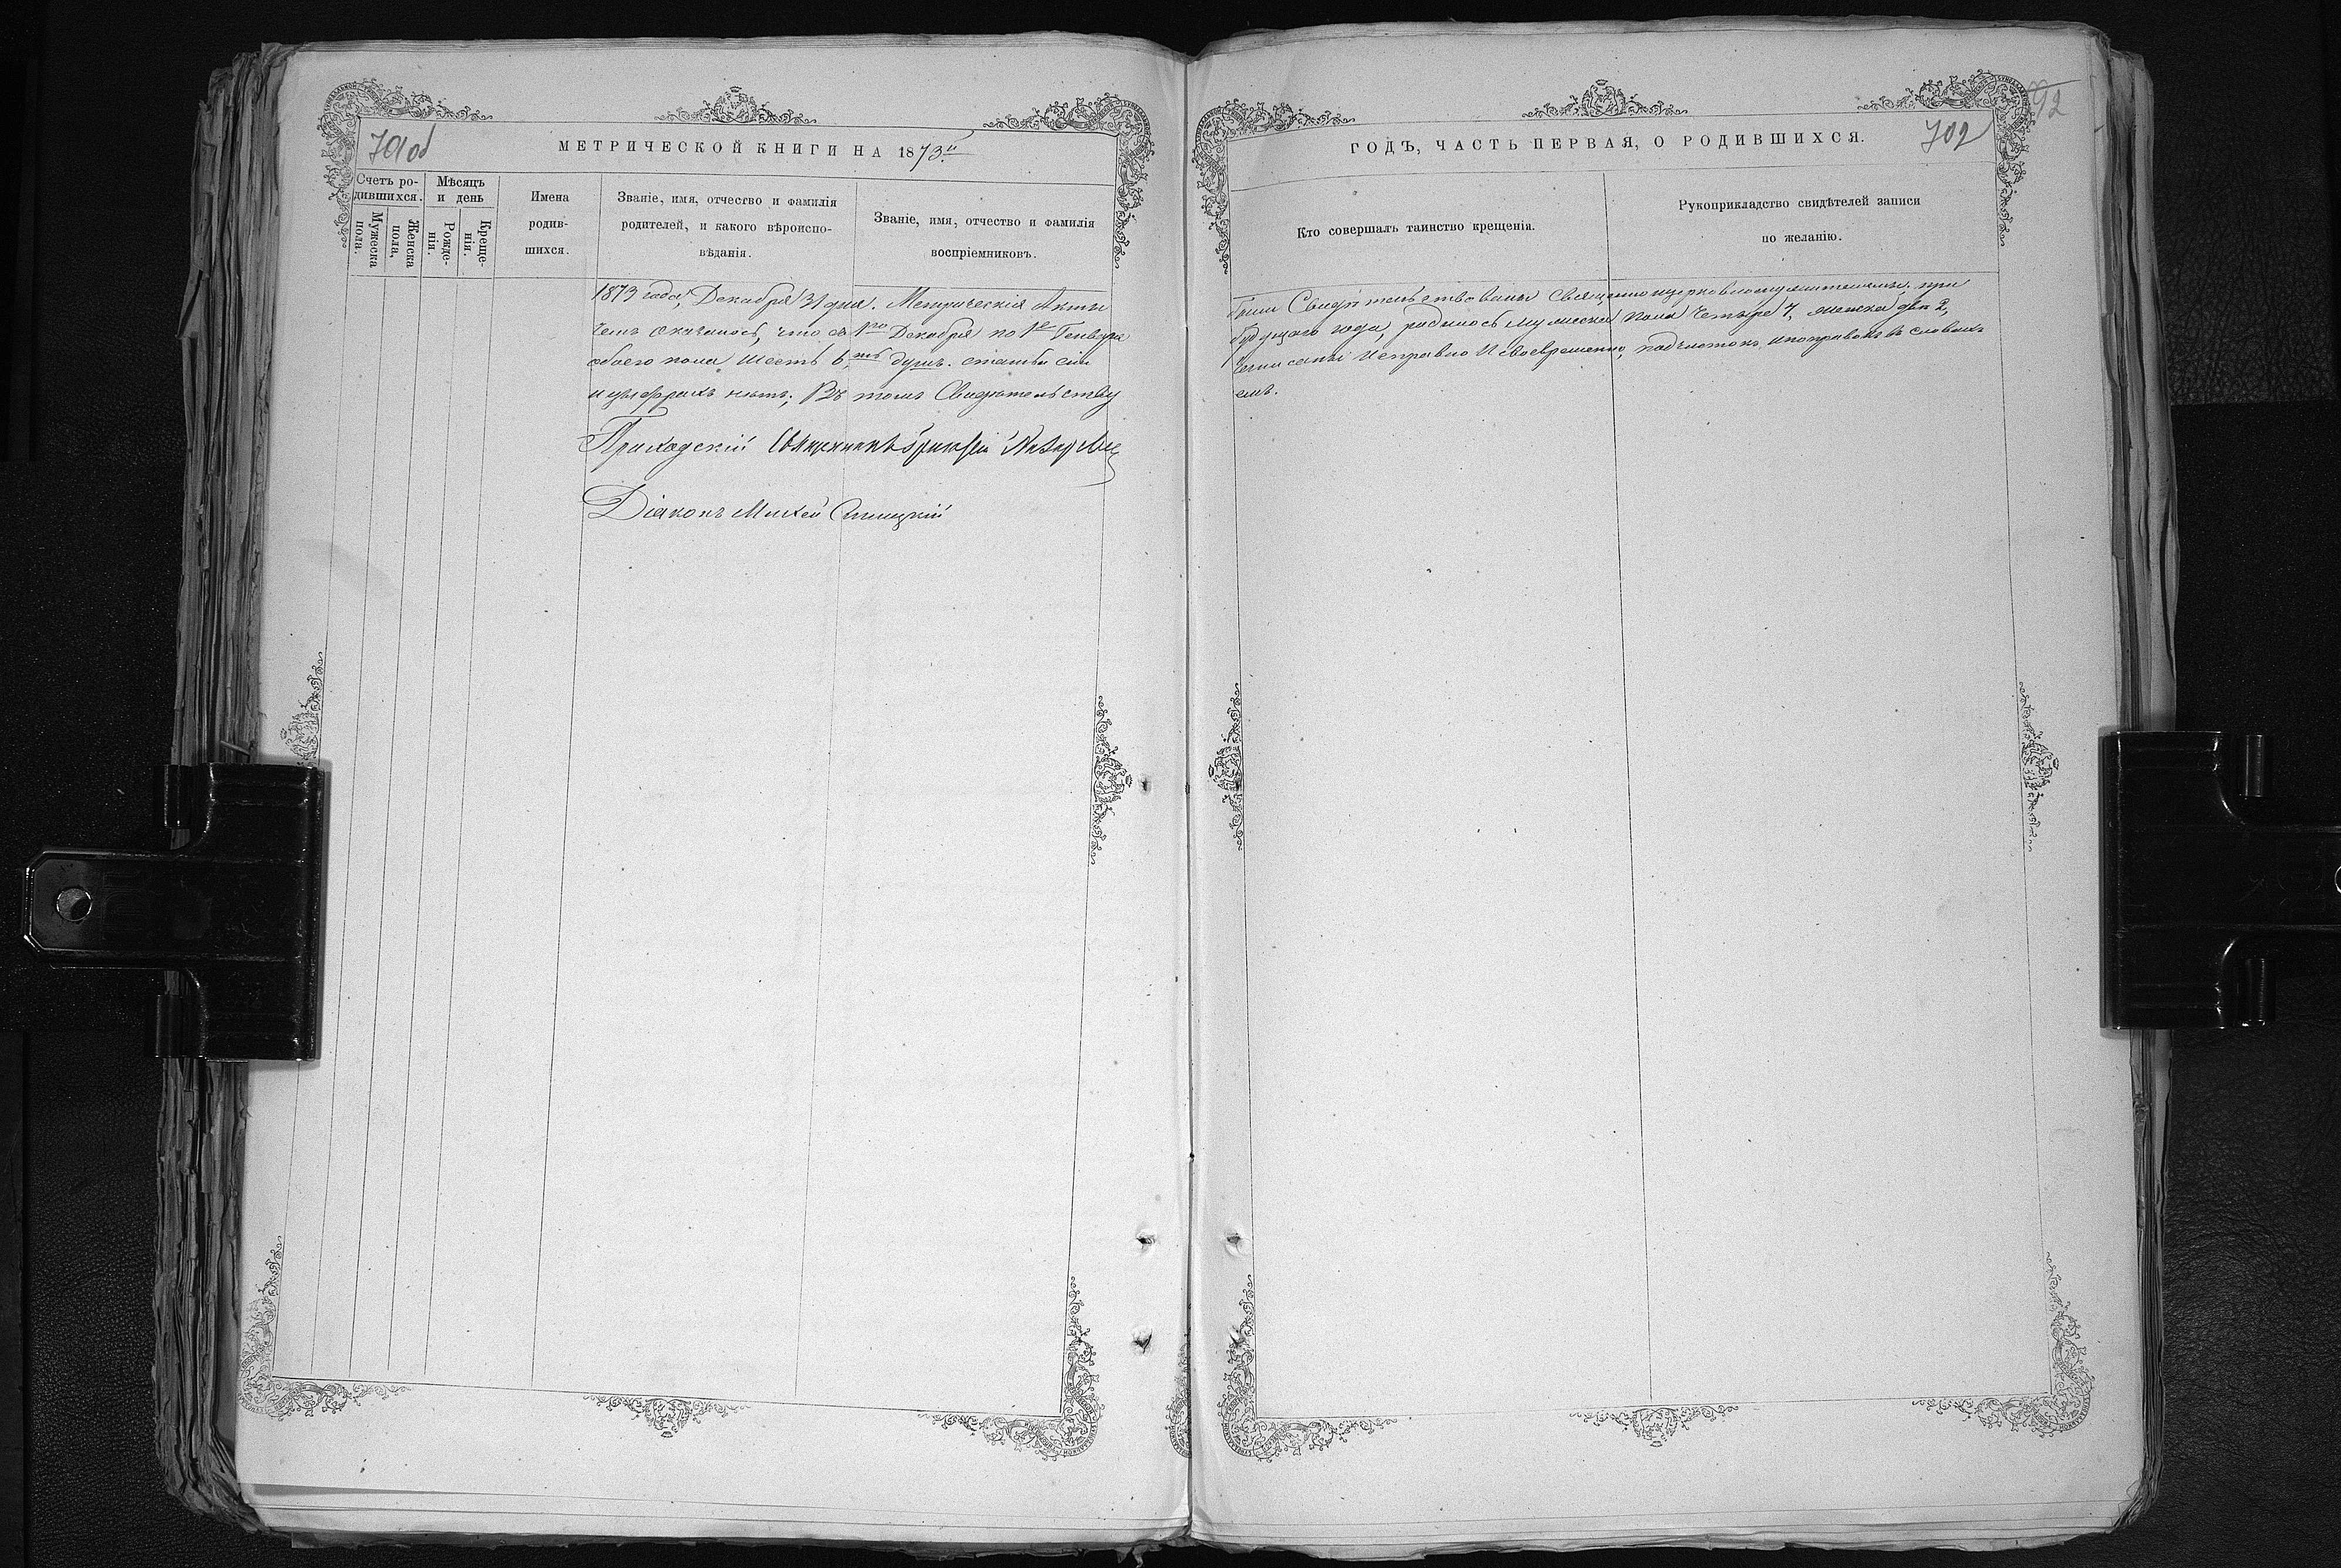 701об
МЕТРИЧЕСКОЙ КНИГИ НА 1873й
Счетъ ро-
дившихся.
Мужеска
пола.
Женска
пола.
Мѣсяцъ
и день
Рожде-
нія.
Креще-
нія.
Имена
родив-
шихся.
Званіе, имя, отчество и фамилія
родителей, и какого вѣроиспо-
вѣданія.
Званіе, имя, отчество и фамилія
воспріемниковъ.
1873 года, Декабря 31 дня. Метрическія Акты
чемъ оказалось, что съ 1го Декабря по 1е Генваря
обоего пола шесть 6ть душъ. статьи сіи
и цыфрахъ нѣтъ; Въ томъ Свидѣтельству
Приходскій Священникъ
Діаконъ Михей
92
ГОДЪ, ЧАСТЬ ПЕРВАЯ, О РОДИВШИХСЯ.
702
Кто совершалъ таинство крещенія.
Рукоприкладство свидѣтелей записи
по желанію.
были Свидѣтельствованы Священноцерковнослужителями. при
будущаго года, родилось мужеска пола четыре 4, женска двѣ 2,
писаны Исправно И своевременно, подчистокъ, и поправокъ въ словахъ
емъ.